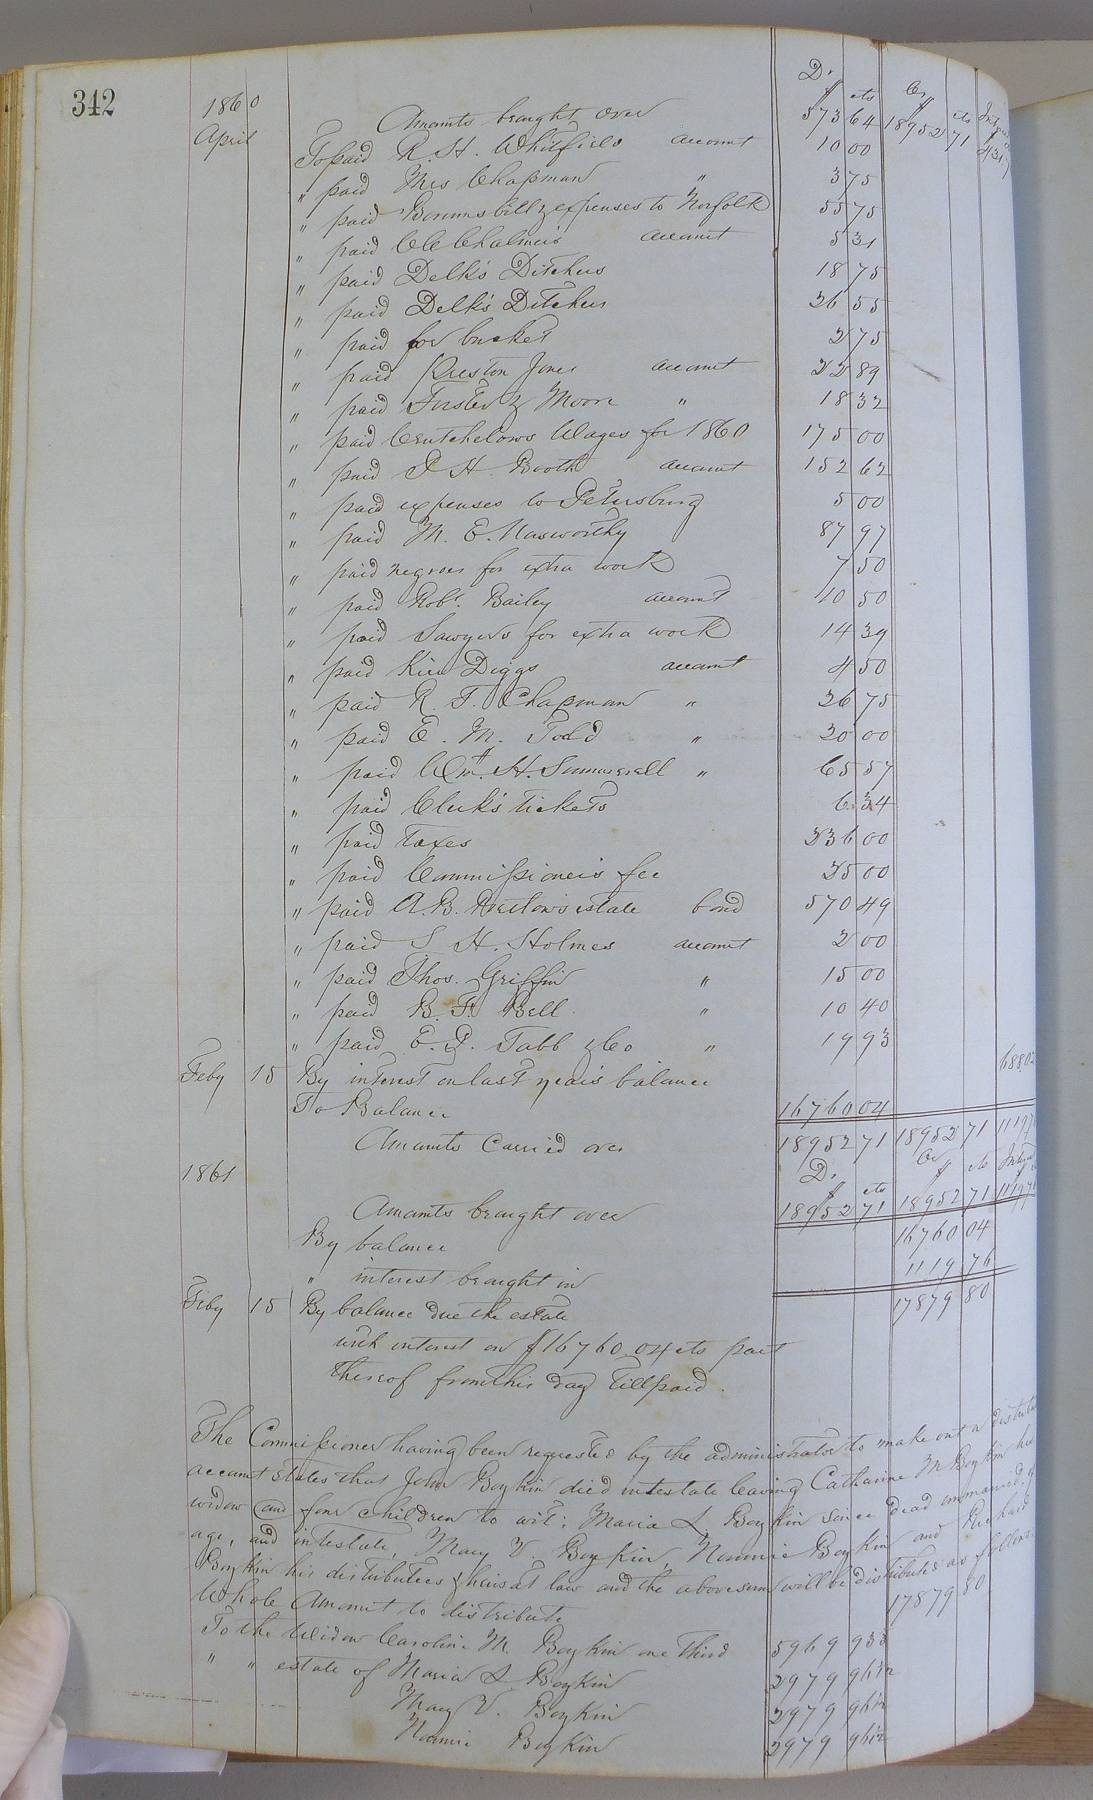 342
1860 D. Cr
April Amounts brought over $ 573 64 cts 18952 71
To paid R. H. Whitfields account 10 00
" paid Mrs Chapman " 3 75
" paid Borums bill & expenses to Norfolk 55 75
" paid C C Chalmers account 5 31
" paid Delk's Ditchers 18 75
" paid Delk's Ditcher 26 55
" paid for bucket 2 75
" paid Preston Jones account 22 89
" paid Foster & Moore " 18 32
" paid Crutchelows Wages for 1860 175 00
" paid P H. Booth account 152 62
" paid expenses to Petersburg 5 00
" paid M. E. Nasworthy 87 97
" paid negroes for extra work 7 50
" paid Robt. Bailey account 10 50
" paid Sawyers for extra work 14 39
" paid Diggs account 4 50
" paid R. F. Chapman " 26 75
" paid E. M. Todd " 30 00
" paid Wm. H. Summerell " 65 57
" paid Clerk's tickets 6 34
" paid taxes 236 00
" paid Commissioners fee 25 00
" paid A. B. estate bond 570 49
" paid S H. Holmes account 2 00
" paid Thos. Griffin " 15 00
" paid B. F. Bell " 10 40
" paid E. P. Tabb & Co " 19 93
Feby 15 By interest on last years balance 688,02
To Balance 16760 04
Amounts Carried over 18952 71 18952 71 1119 76
1861 D. $ cts Cr $ cts
Amounts brought over 18952 71 18952 71 1119 76
By balance 16760 04
" interest brought in 1119 76
Feby 15 By balance due the estate 17879 80
with interest on $16760.04 cts part
thereof from this day till paid.
The Commissioner having been requested by the administrator to make out a
account states that John Boykin died intestate leaving Catharine M Boykin his
widow and four children to wit: Maria L Boykin since dead unmarried,
age, and intestate, Mary V Boykin, Nannie Boykin and Richard
Boykin his distributees & heirs at law and the above sum will be distributed as follows
Whole Amount to distribute 17879 80
To the Widow Caroline M. Boykin one third 5969 933
" " estate of Maria L Boykin 2979 96
Mary V. Boykin 2979 96
Nannie Boykin 2979 96